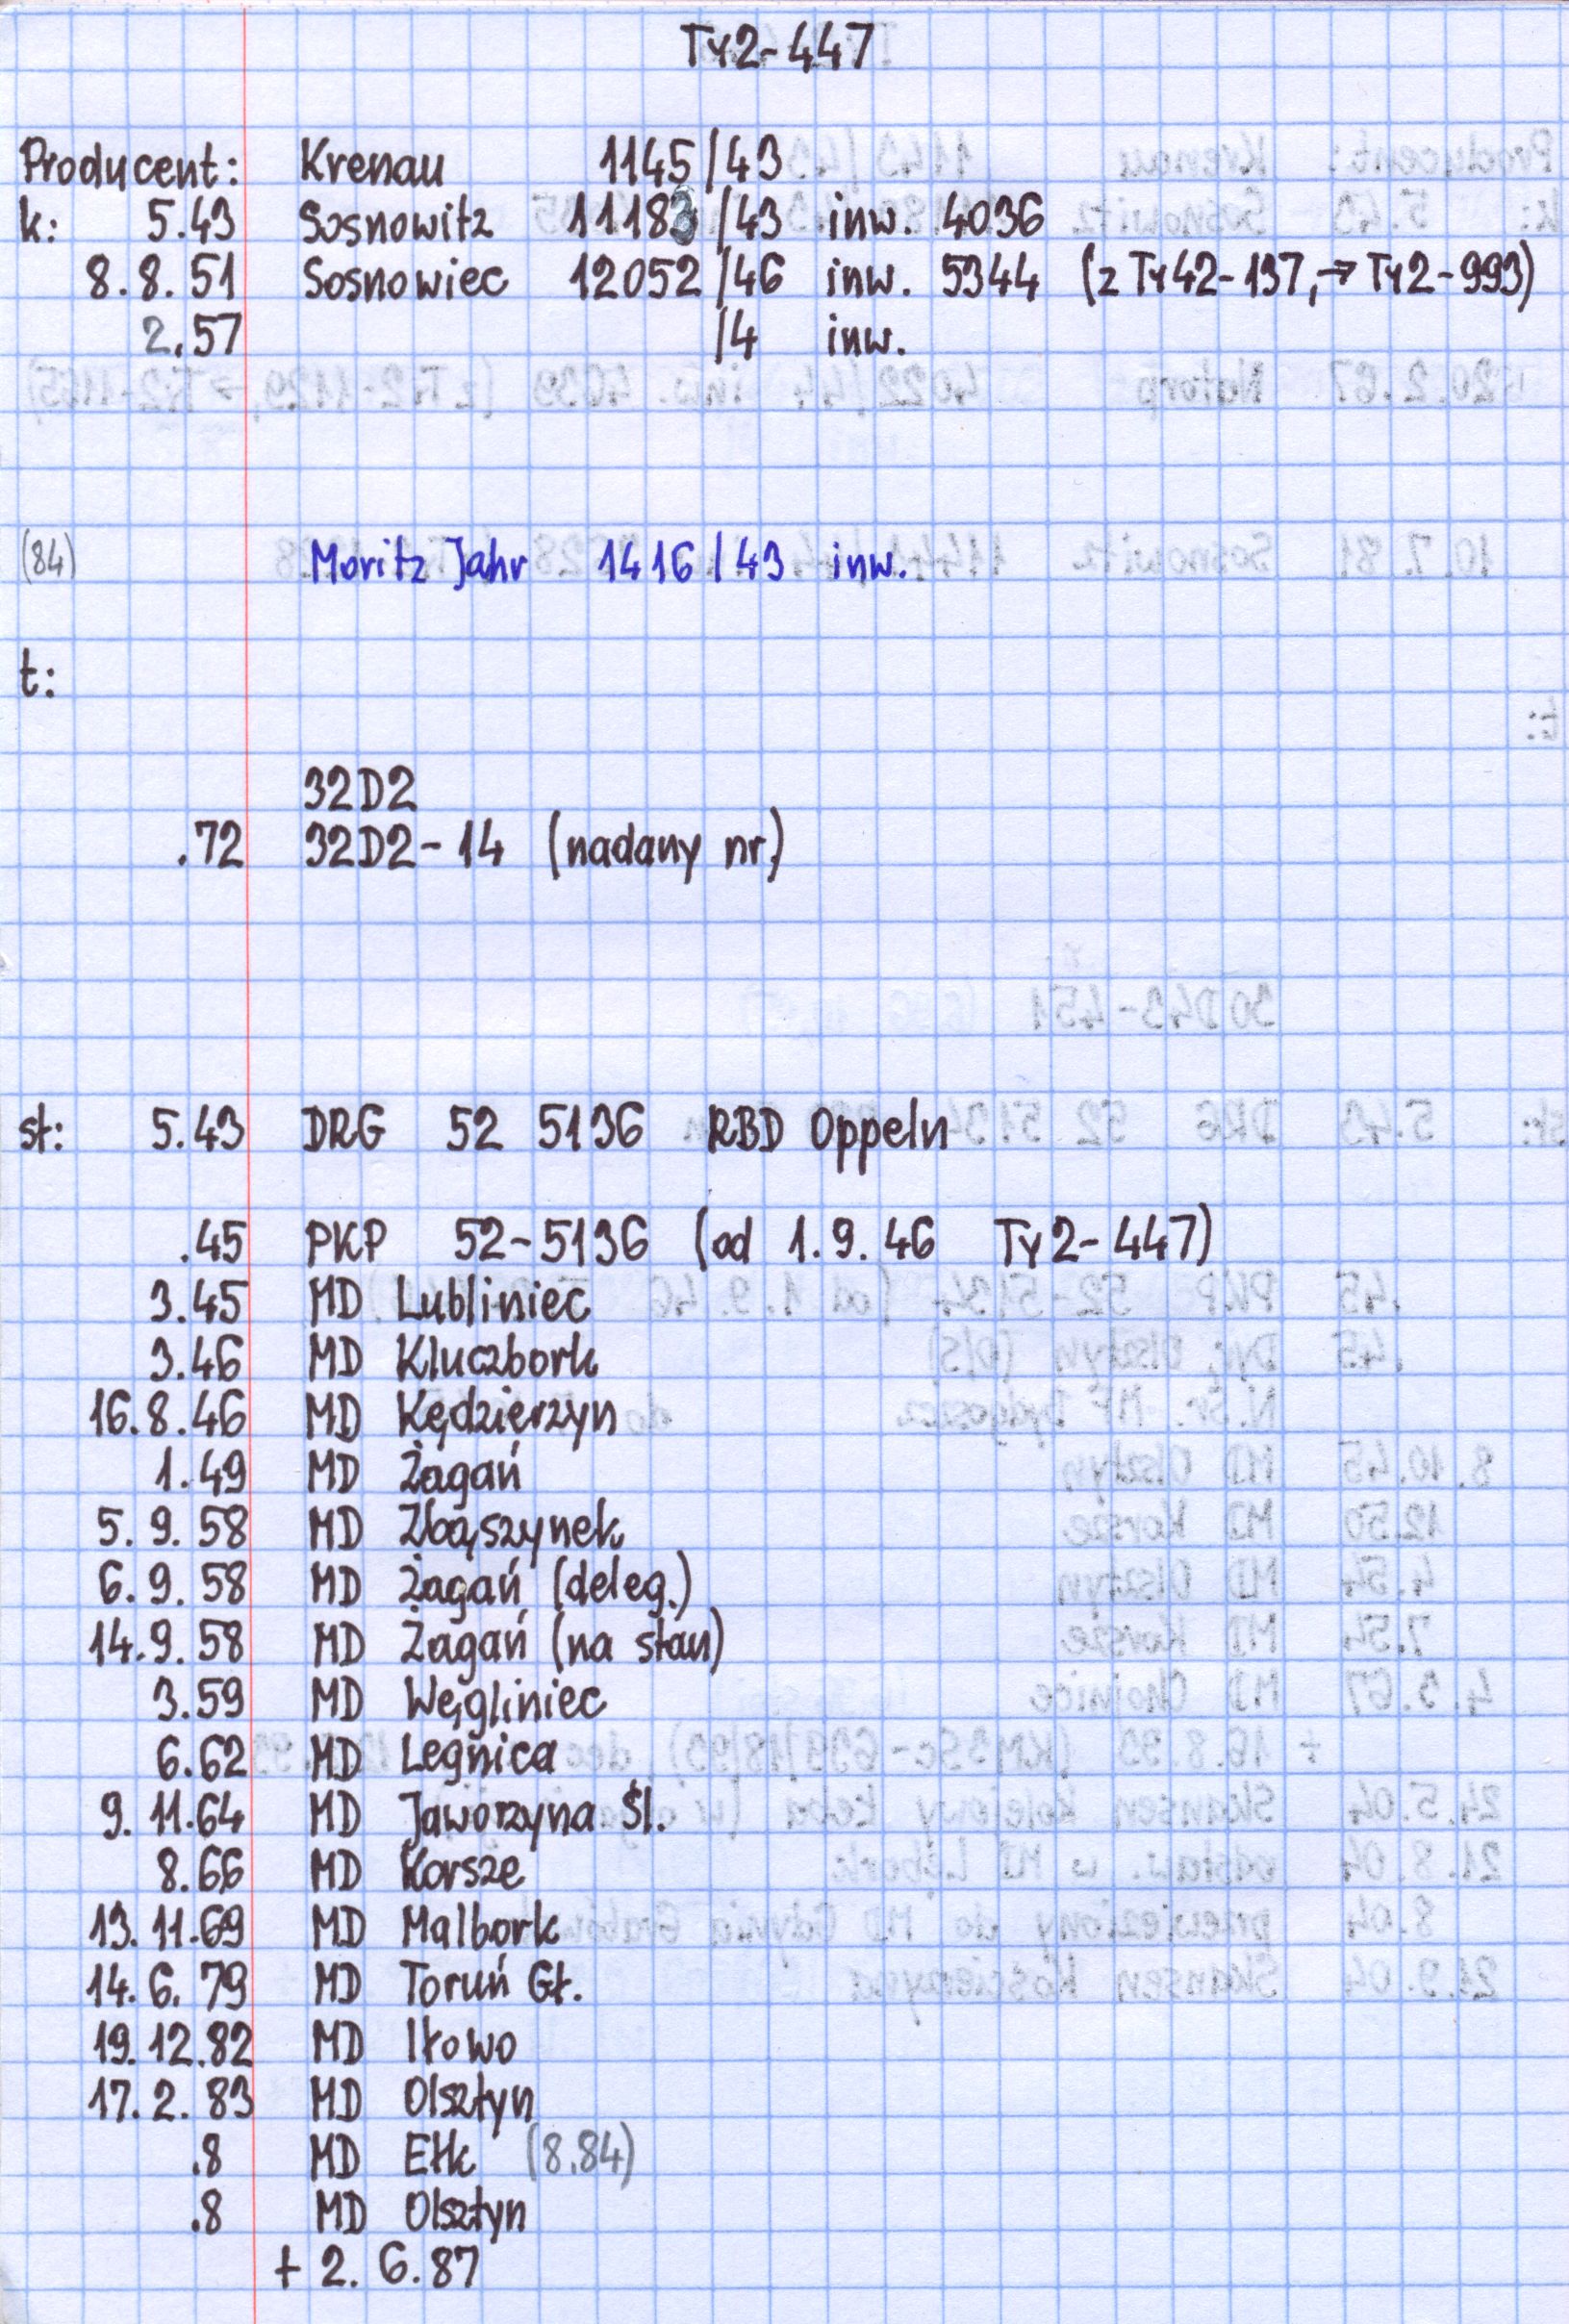 Ty2-447
Producent: Krenau 1145/43
k: 5.43 Sosnowitz 11183/43 inw. 4036
8.8.51 Sosnowiec 12052/46 inw. 5344 (z Ty42-137, → Ty2-993)
2.57 /4 inw.
(84) Moritz Jahr 1416/43 inw.
t:
32D2
.72 32D2-14 (nadany nr.)
st: 5.43 DRG 52 5136 RBD Oppeln
.45 PKP 52-5136 (od 1.9.46 Ty2-447)
3.45 MD Lubliniec
3.46 MD Kluczbork
16.8.46 MD Kędzierzyn
1.49 MD Żagań
5.9.58 MD Zbąszynek
6.9.58 MD Żagań (deleg.)
14.9.58 MD Żagań (na stan)
3.59 MD Węgliniec
6.62 MD Legnica
9.11.64 MD Jaworzyna Śl.
8.66 MD Korsze
13.11.69 MD Malbork
14.6.79 MD Toruń Gł.
19.12.82 MD Iłowo
17.2.83 MD Olsztyn
.8 MD Ełk (8.84)
.8 MD Olsztyn
+ 2.6.87